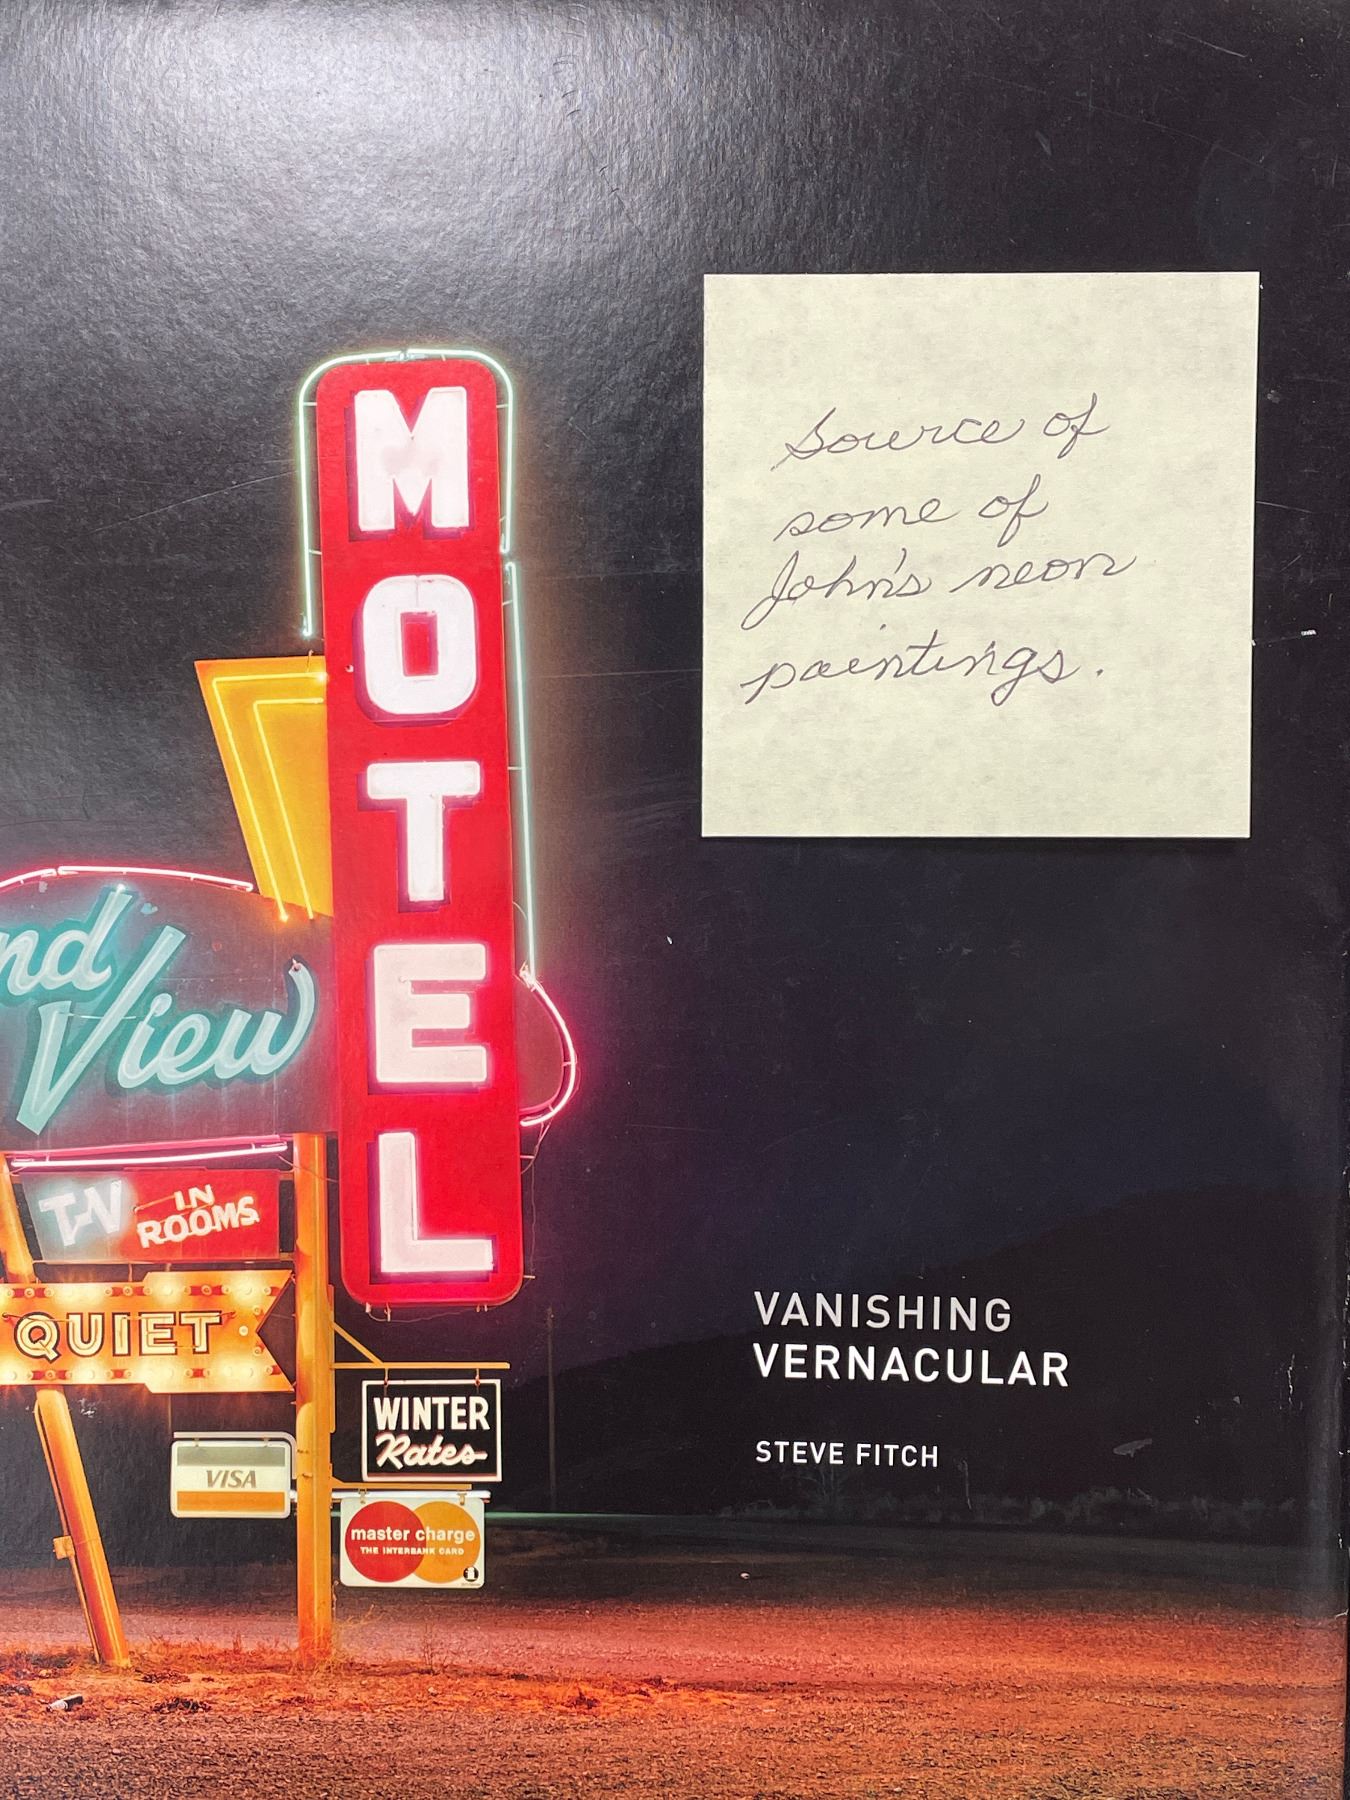 Source of
some of
John's neon
paintings.
MOTEL
nd
View
TV IN
ROOMS
QUIET
WINTER
Rates
VISA
master charge
THE INTERBANK CARD
VANISHING
VERNACULAR
STEVE FITCH